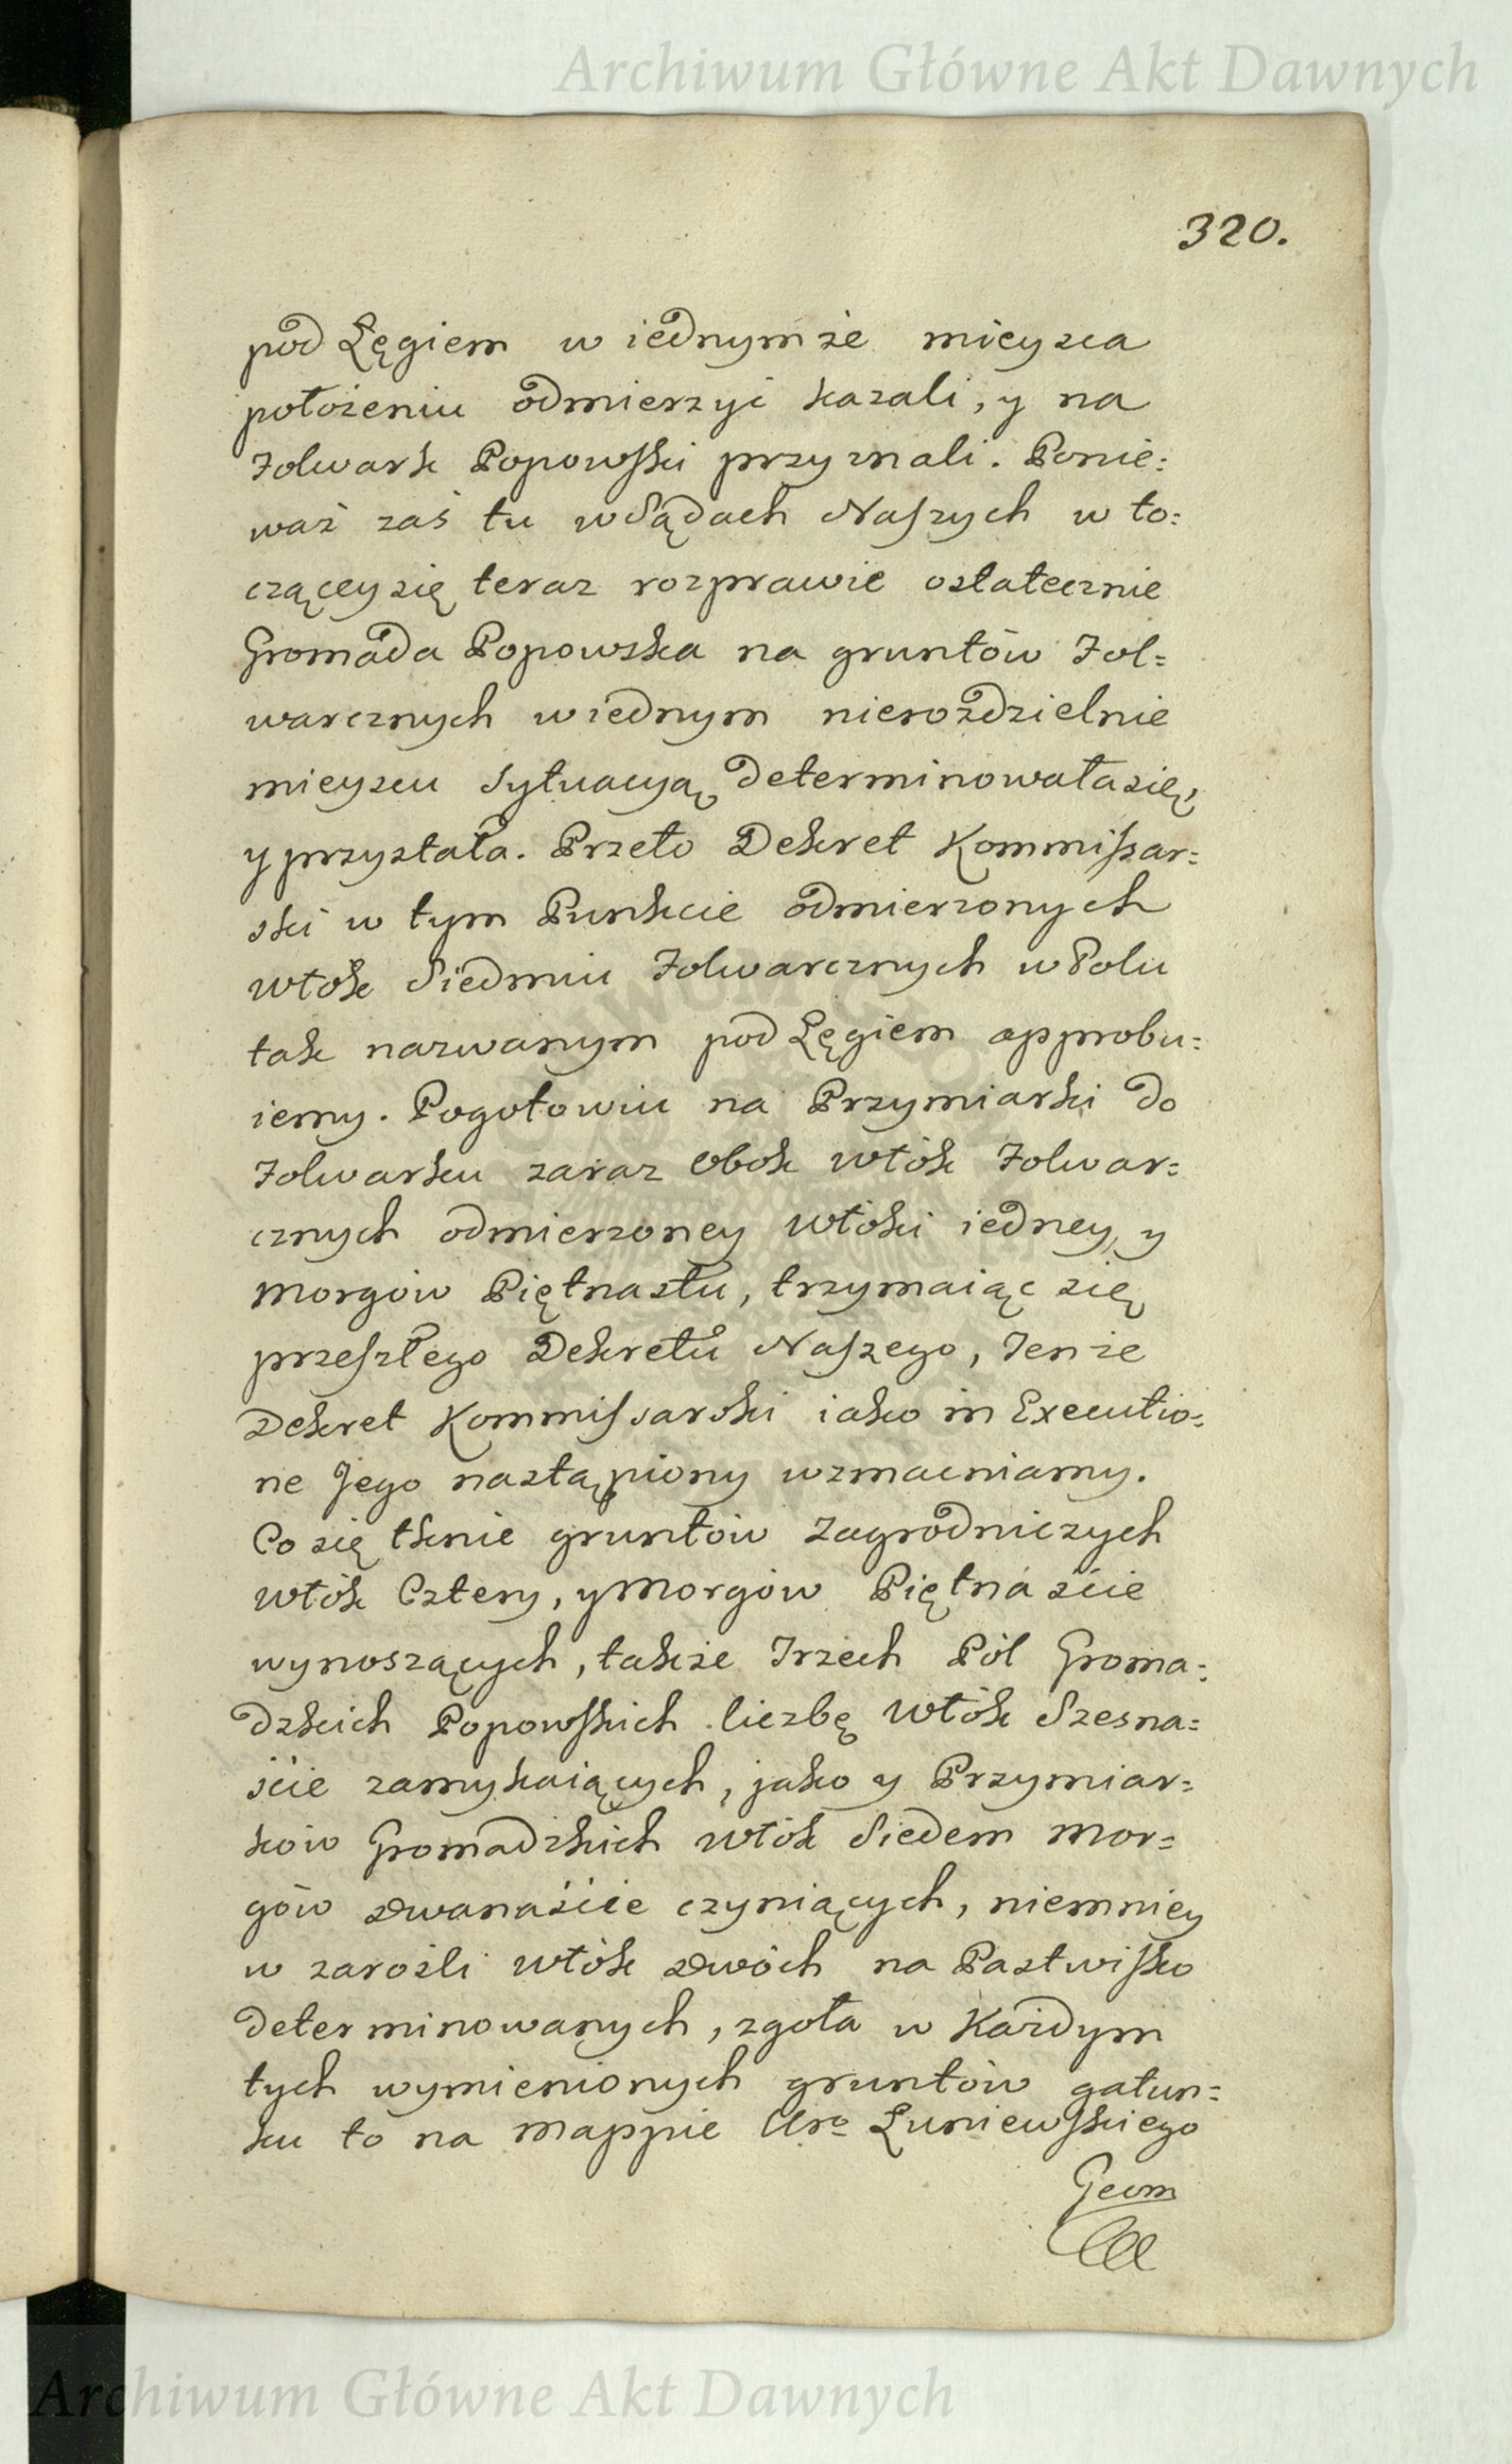 Archiwum Główne Akt Dawnych
320.
pod Łęgiem w iednymże mieysca
położeniu odmierzyć kazali, y na
Folwark Popowski przyznali. Ponie:
waż zaś tu w Sądach Naszych w to:
czącey się teraz rozprawie ostatecznie
Gromada Popowska na gruntów Fol=
warcznych w iednym nierozdzielnie
mieyscu Sytuacyą determinowała się,
y przystała. Przeto Dekret Kommissar=
ski w tym Punkcie odmierzonych
włók Siedmiu Folwarcznych w Polu
tak nazwanym pod Łęgiem approbu:
iemy. Pogotowiu na Przymiarki do
Folwarku zaraz obok włók Folwar=
cznych odmierzoney włóki iedney, y
Morgów Piętnastu, trzymaiąc się
przeszłego Dekretu Naszego, Tenże
Dekret Kommissarski iako in Executio=
ne Jego nastąpiony wzmacniamy.
Co się tknie gruntów Zagrodniczych
włók Cztery, y Morgów Piętnaście
wynoszących, także Trzech Pól Groma=
dzkich Popowskich liczbę włók Szesna=
ście zamykaiących, jako y Przymiar=
ków Gromadzkich włók Siedem Mor=
gów Dwanaście czyniących, niemniey
w zarośli włók Dwóch na Pastwisko
determinowanych, zgoła w Każdym
tych wymienionych gruntów gatun=
ku to na Mappie Uro Łuniewskiego
Geom
Archiwum Główne Akt Dawnych